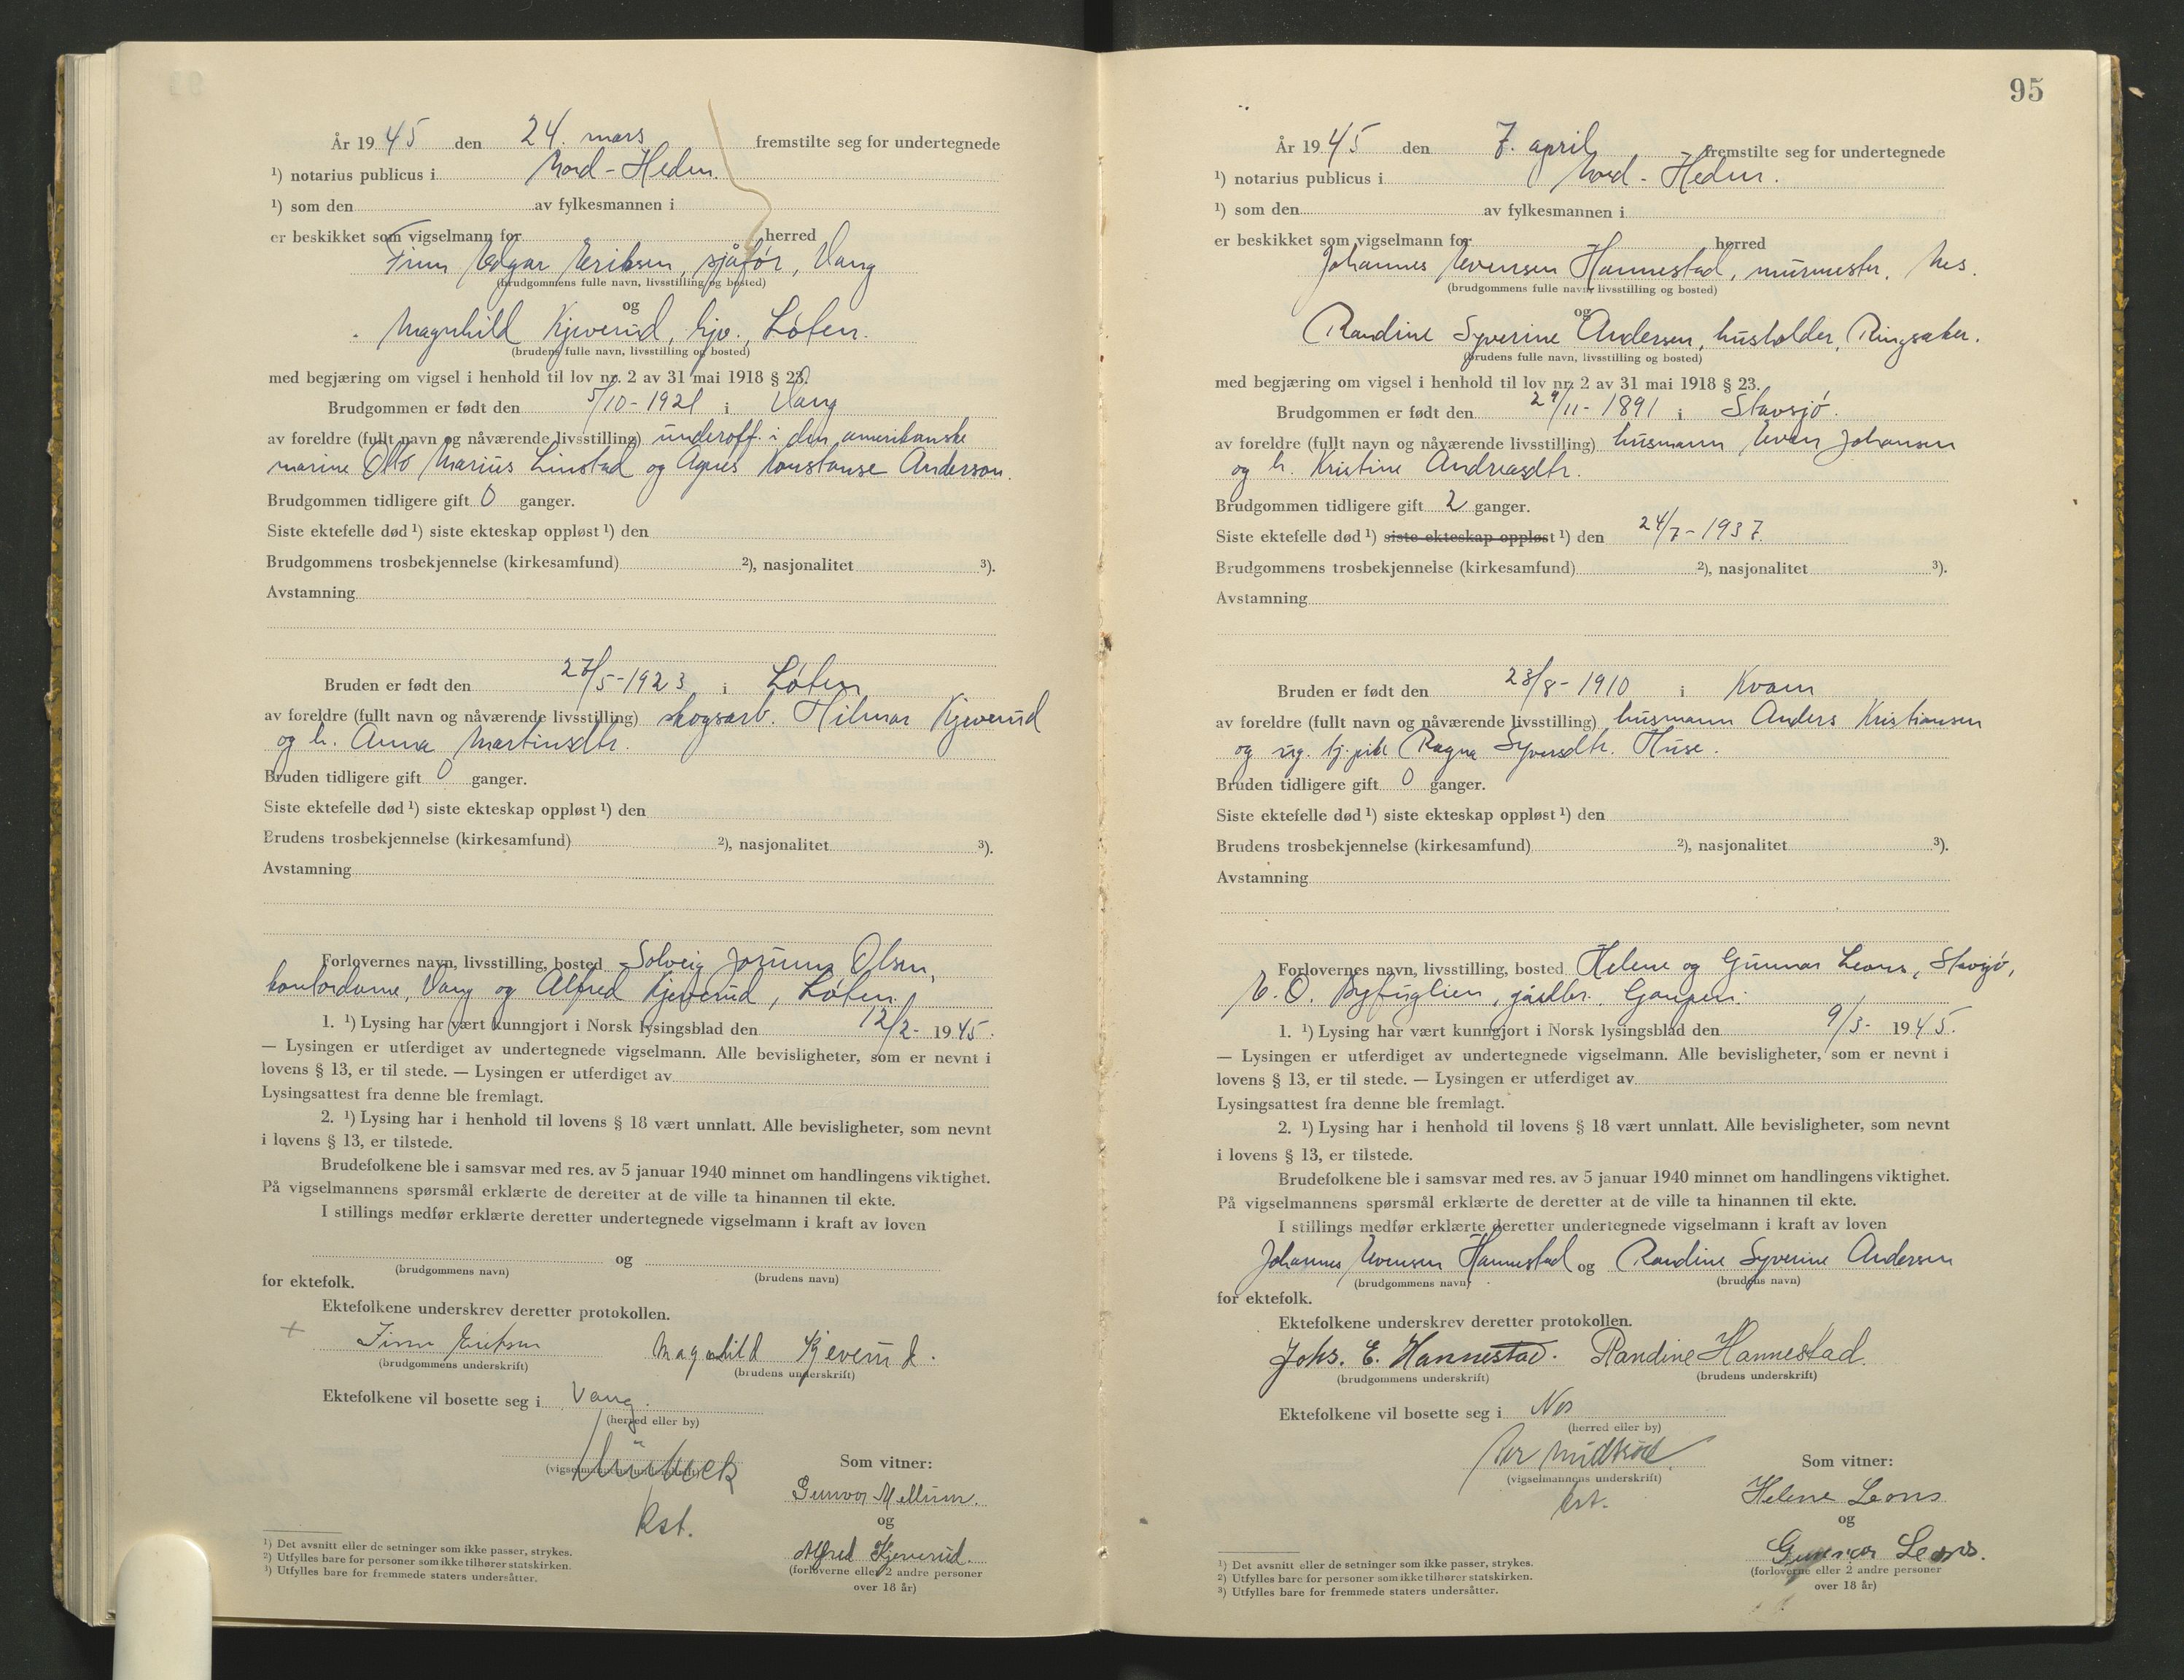 År 1945 den 24. mars fremstilte seg for undertegnede
¹) notarius publicus i Nord-Hedm.
¹) som den av fylkesmannen i
er beskikket som vigselmann for herred
Finn Edgar Eriksen, sjåfør, Vang
(brudgommens fulle navn, livsstilling og bosted)
og
Magnhild Kjeverud, hjv., Løten.
(brudens fulle navn, livsstilling og bosted)
med begjæring om vigsel i henhold til lov nr. 2 av 31 mai 1918 § 23.
Brudgommen er født den 5/10-1921 i Vang
av foreldre (fullt navn og nåværende livsstilling) underoff. i den amerikanske
marine Otto Marius Linstad og Agnes Konstanse Anderson.
Brudgommen tidligere gift 0 ganger.
Siste ektefelle død ¹) siste ekteskap oppløst ¹) den
Brudgommens trosbekjennelse (kirkesamfund) ²), nasjonalitet ³).
Avstamning
Bruden er født den 27/5-1923 i Løten
av foreldre (fullt navn og nåværende livsstilling) skogsarb. Hilmar Kjeverud
og h. Anna Martinsdtr.
Bruden tidligere gift 0 ganger.
Siste ektefelle død ¹) siste ekteskap oppløst ¹) den
Brudens trosbekjennelse (kirkesamfund) ²), nasjonalitet ³).
Avstamning
Forlovernes navn, livsstilling, bosted Solveig Jorunn Olsen,
kontordame, Vang og Alfred Kjeverud, Løten.
1. ¹) Lysing har vært kunngjort i Norsk lysingsblad den 12/2- 1945.
— Lysingen er utferdiget av undertegnede vigselmann. Alle bevisligheter, som er nevnt i
lovens § 13, er til stede. — Lysingen er utferdiget av
Lysingsattest fra denne ble fremlagt.
2. ¹) Lysing har i henhold til lovens § 18 vært unnlatt. Alle bevisligheter, som nevnt
i lovens § 13, er tilstede.
Brudefolkene ble i samsvar med res. av 5 januar 1940 minnet om handlingens viktighet.
På vigselmannens spørsmål erklærte de deretter at de ville ta hinannen til ekte.
I stillings medfør erklærte deretter undertegnede vigselmann i kraft av loven
og
(brudgommens navn) (brudens navn)
for ektefolk.
Ektefolkene underskrev deretter protokollen.
+ Finn Eriksen Magnhild Kjeverud.
(brudgommens underskrift) (brudens underskrift)
Ektefolkene vil bosette seg i Vang.
(herred eller by)
(vigselmannens underskrift) Som vitner:
Gunvor Mellum.
kst. og
Alfred Kjeverud.
(forloverne eller 2 andre personer
over 18 år)
¹) Det avsnitt eller de setninger som ikke passer, strykes.
²) Utfylles bare for personer som ikke tilhører statskirken.
³) Utfylles bare for fremmede staters undersåtter.
95
År 1945 den 7. april fremstilte seg for undertegnede
¹) notarius publicus i Nord-Hedm.
¹) som den av fylkesmannen i
er beskikket som vigselmann for herred
Johannes Evensen Hannestad, murmester, Nes.
(brudgommens fulle navn, livsstilling og bosted)
og
Randine Syverine Andersen, husholder, Ringsaker.
(brudens fulle navn, livsstilling og bosted)
med begjæring om vigsel i henhold til lov nr. 2 av 31 mai 1918 § 23.
Brudgommen er født den 29/11-1891 i Stavsjø.
av foreldre (fullt navn og nåværende livsstilling) husmann Even Johansen
og h. Kristine Andreasdtr.
Brudgommen tidligere gift 2 ganger.
Siste ektefelle død ¹) siste ekteskap oppløst ¹) den 24/7-1937.
Brudgommens trosbekjennelse (kirkesamfund) ²), nasjonalitet ³).
Avstamning
Bruden er født den 23/8-1910 i Kvam
av foreldre (fullt navn og nåværende livsstilling) husmann Anders Kristiansen
og ug. tj.pike Ragna Syversdtr. Huse.
Bruden tidligere gift 0 ganger.
Siste ektefelle død ¹) siste ekteskap oppløst ¹) den
Brudens trosbekjennelse (kirkesamfund) ²), nasjonalitet ³).
Avstamning
Forlovernes navn, livsstilling, bosted Helene og Gunnar Leons, Stavsjø,
E. O. Byfuglien, gårdbr., Gaupen.
1. ¹) Lysing har vært kunngjort i Norsk lysingsblad den 9/3- 1945.
— Lysingen er utferdiget av undertegnede vigselmann. Alle bevisligheter, som er nevnt i
lovens § 13, er til stede. — Lysingen er utferdiget av
Lysingsattest fra denne ble fremlagt.
2. ¹) Lysing har i henhold til lovens § 18 vært unnlatt. Alle bevisligheter, som nevnt
i lovens § 13, er tilstede.
Brudefolkene ble i samsvar med res. av 5 januar 1940 minnet om handlingens viktighet.
På vigselmannens spørsmål erklærte de deretter at de ville ta hinannen til ekte.
I stillings medfør erklærte deretter undertegnede vigselmann i kraft av loven
Johannes Evensen Hannestad og Randine Syverine Andersen
(brudgommens navn) (brudens navn)
for ektefolk.
Ektefolkene underskrev deretter protokollen.
Johs. E. Hannestad. Randine Hannestad.
(brudgommens underskrift) (brudens underskrift)
Ektefolkene vil bosette seg i Nes
(herred eller by)
(vigselmannens underskrift) Som vitner:
kst. Helene Leons
og
Gunnar Leons.
(forloverne eller 2 andre personer
over 18 år)
¹) Det avsnitt eller de setninger som ikke passer, strykes.
²) Utfylles bare for personer som ikke tilhører statskirken.
³) Utfylles bare for fremmede staters undersåtter.